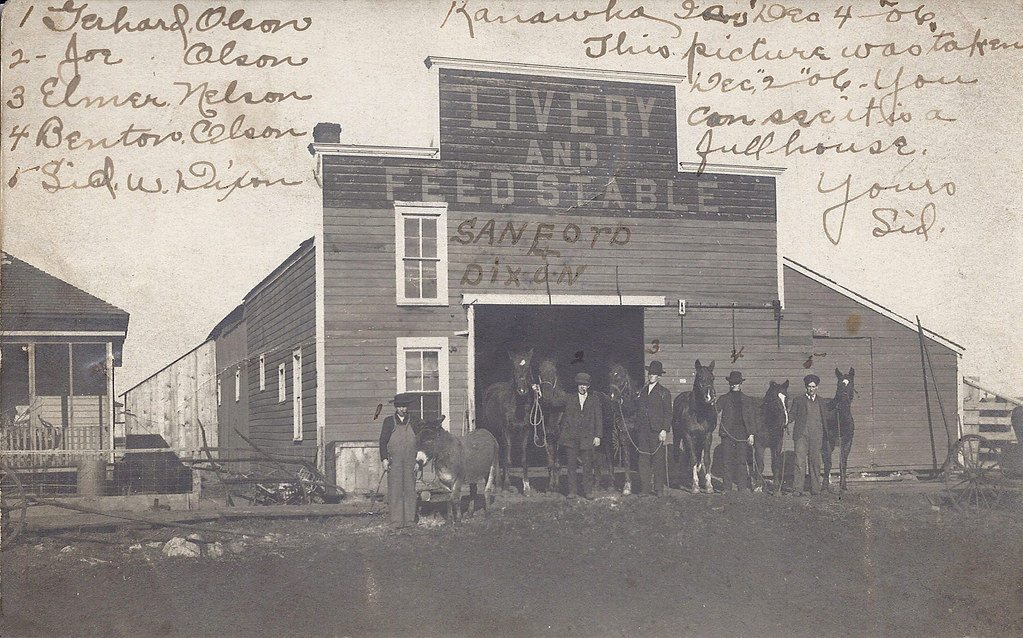 1 Gerhard Olson
2 - Joe Olson
3 Elmer Nelson
4 Benton Olson
5 Sid. W. Dixon
Kanawha Ia Dec 4 - 06.
This picture was taken
Dec, 2 " 06 - You
can see it is a
full house.
Yours
Sid.
LIVERY
AND
FEED STABLE
SANFORD
&
DIXON
1
2
3
4
5